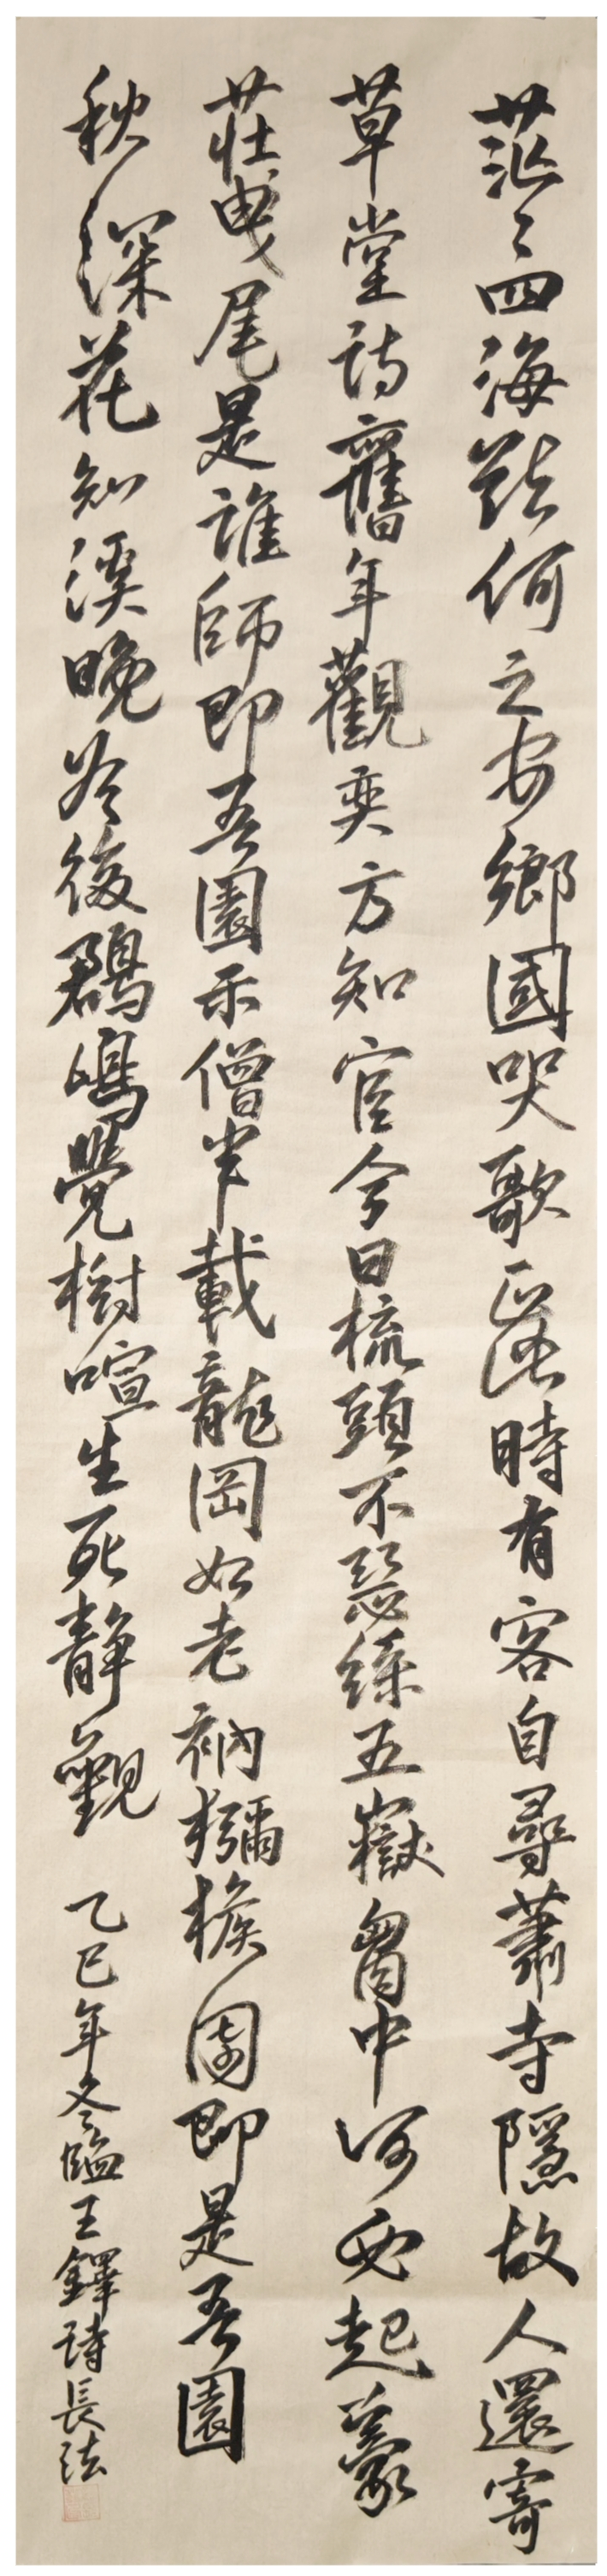 茫〻四海欲何之安鄉國哭歌正此時有客自尋蕭寺隱故人還寄
草堂詩舊年觀奕方知官今日梳頭不惡絲五嶽胷中何必起蒙
莊曳尾是誰師即吾園示僧半載龍岡如老衲獼猴園即是吾園
秋深花知溪晚冷後鵾鳴覺樹喧生死靜觀
乙巳年冬臨王鐸詩長法